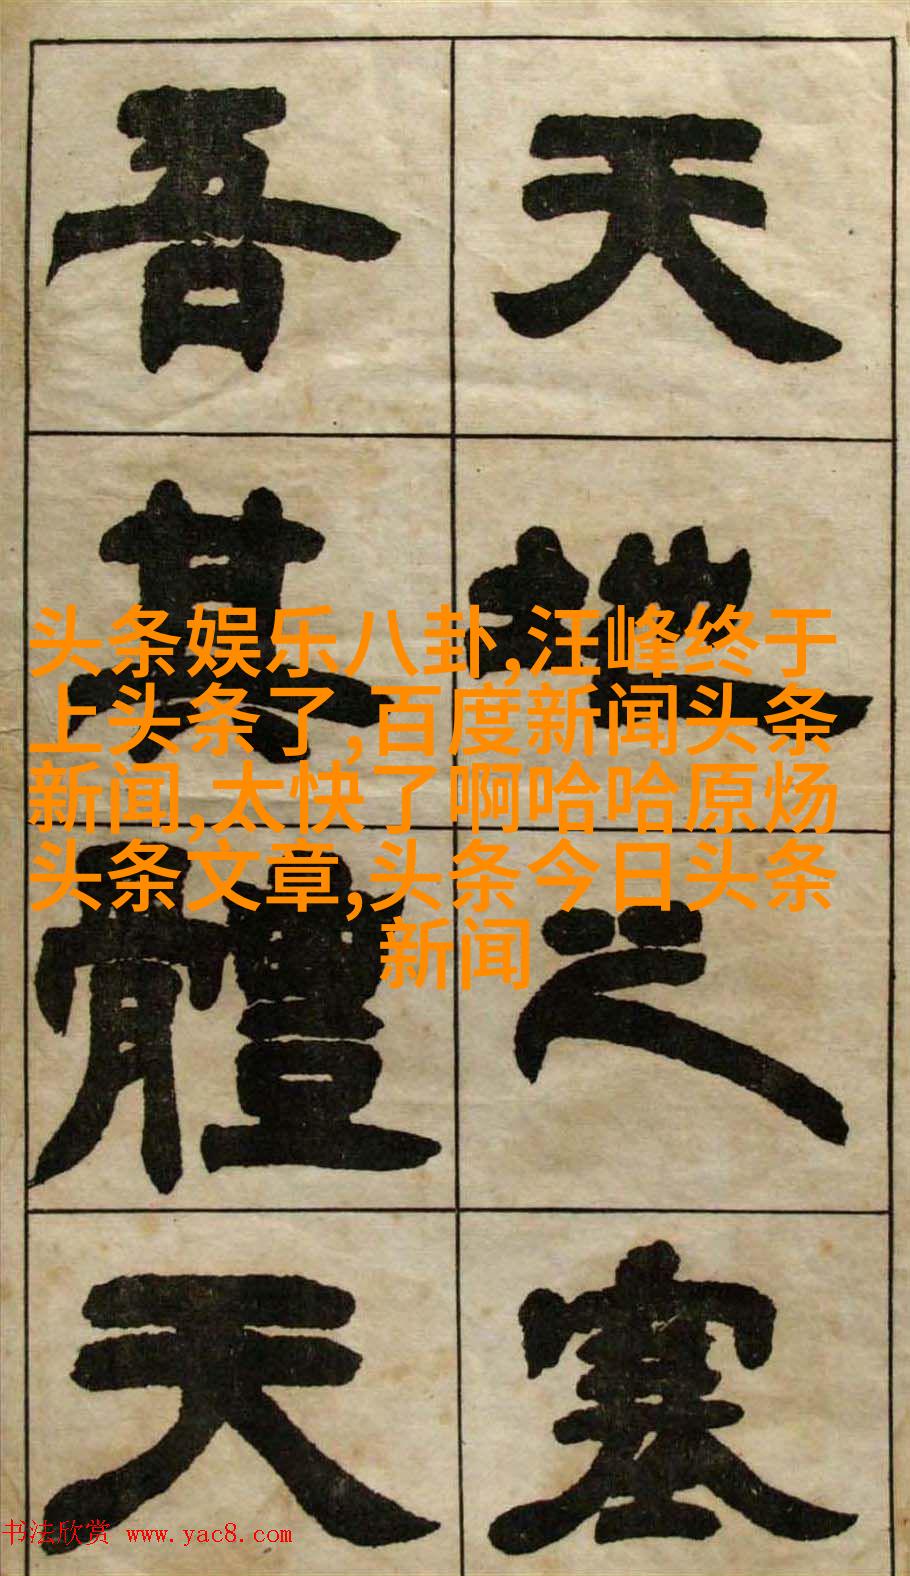 天地之塞
吾其體天
头条娱乐八卦,汪峰终于
上头条了,百度新闻头条
新闻,太快了啊哈哈原炀
头条文章,头条今日头条
新闻
书法欣赏 www.yac8.com